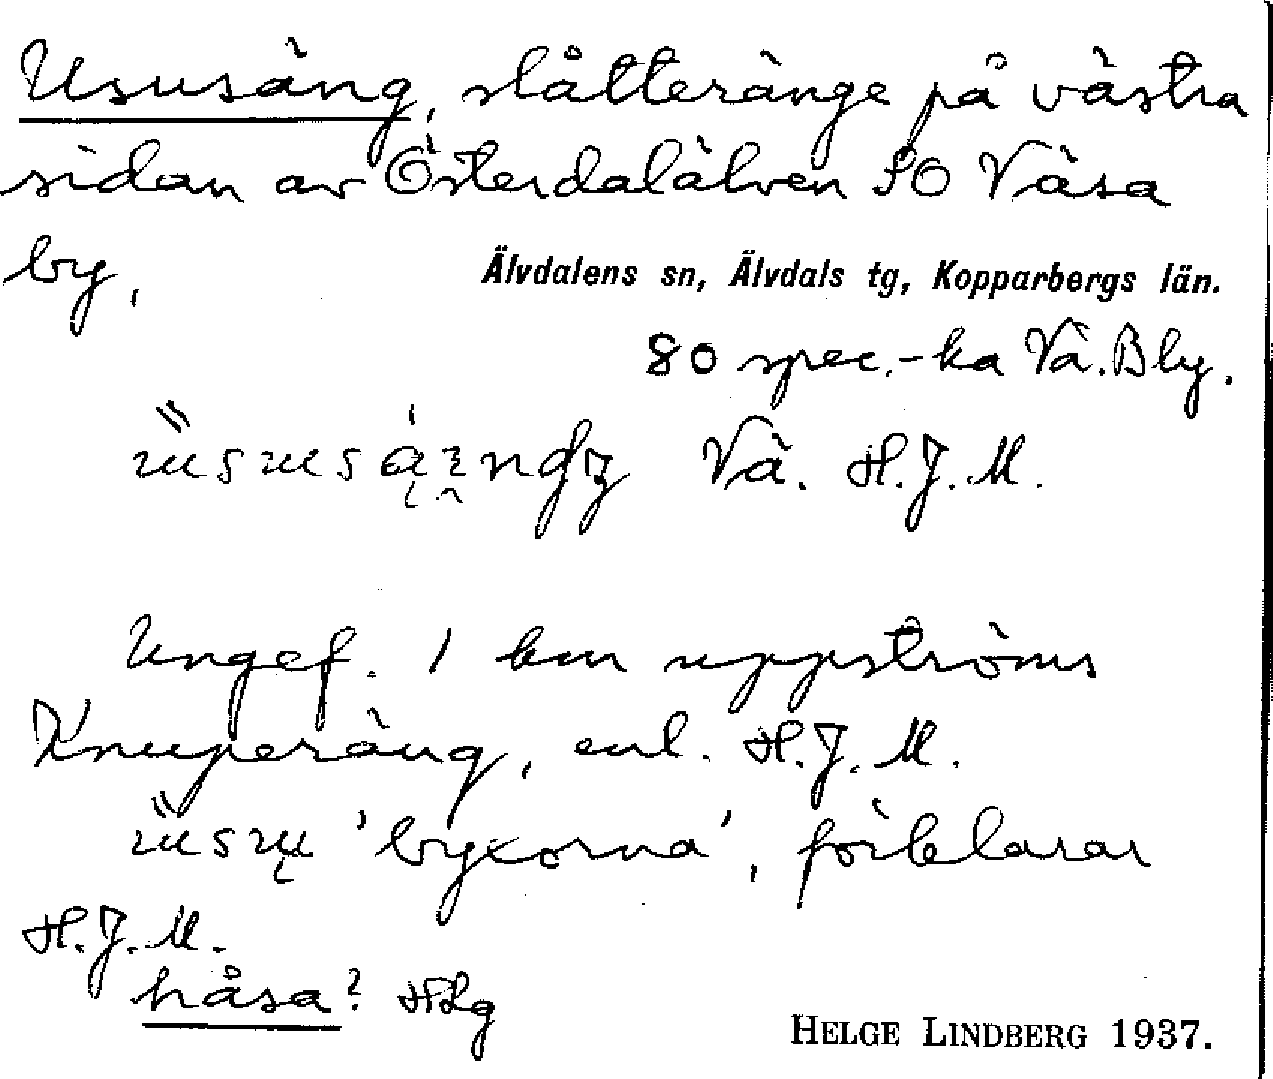 Ususäng, slåtteränge på västra
sidan av Österdalälven SO Väsa
by,
Älvdalens sn, Älvdals tg, Kopparbergs län.
80 spec.-ka Vä. Bly.
Vä. H.J.M.
Ungef. 1 km uppströms
Knuperäng, enl. H.J.M.
'byxorna', förklarar
H.J.M.
håsa? HLg
HELGE LINDBERG 1937.